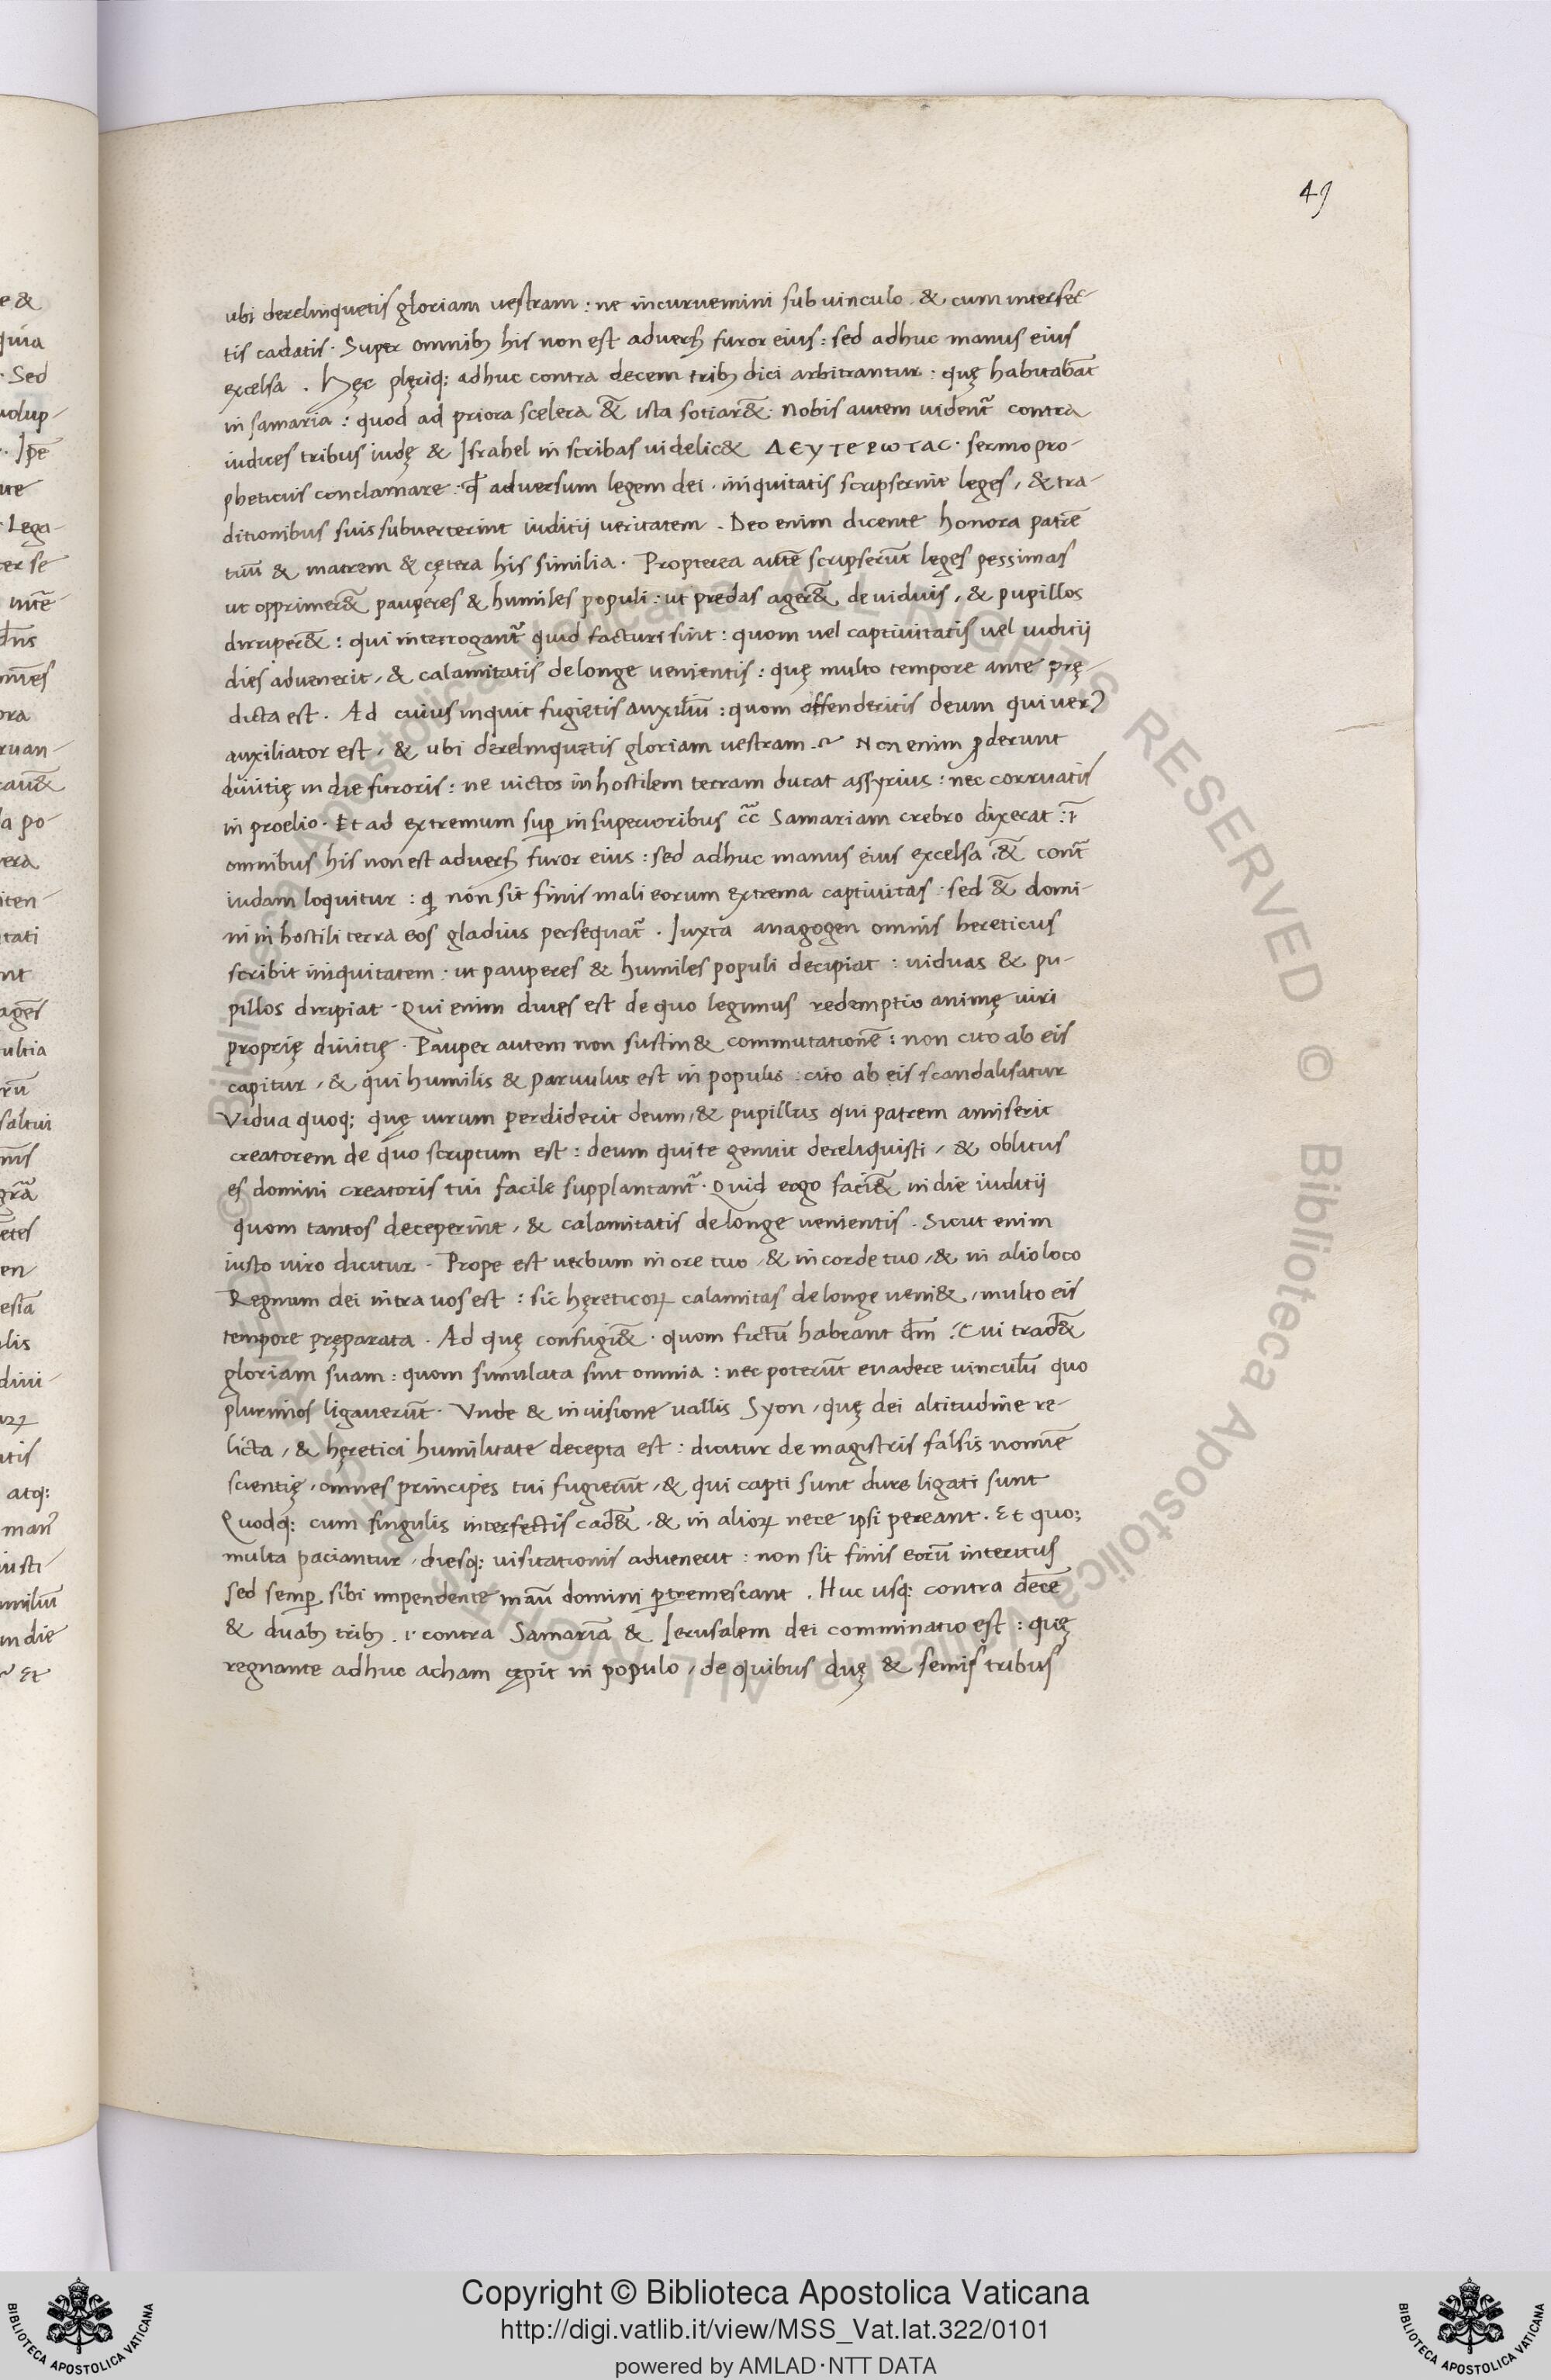 49
ubi derelinquetis gloriam uestram : ne incuruemini sub uinculo . & cum interfec-
tis cadatis . Super omnibꝫ his non est aduersꝭ furor eius : sed adhuc manus eius
excelsa . Hęc plęriqꝫ adhuc contra decem tribꝫ dici arbitrantur : quę habitabāt
in samaria : quod ad priora scelera &̃ ista sotiar&̃ . Nobis autem uident̃ contra
iudices tribus iudę & Israhel in scribas uidelic& ΔΕΥΤΕΡΩΤΑC . sermo pro-
pheticus conclamare : ꝙ aduersum legem dei . iniquitatis scripserint leges , & tra-
ditionibus suis subuerterint iuditij ueritatem . Deo enim dicente honora patrē
tuū & matrem & cętera his similia . Propterea autē scripserūt leges pessimas
ut opprimer&̃ pauperes & humiles populi : ut predas ager&̃ de uiduis , & pupillos
diriper&̃ : qui interrogant̃ quid facturi sint : quom uel captiuitatis uel iuditij
dies aduenerit , & calamitatis de longe uenientis : quę multo tempore ante prę-
dicta est . Ad cuius inquit fugietis auxiliū : quom offenderitis deum qui uer
auxiliator est , & ubi derelinquetis gloriam uestram . Non enim ꝓderunt
diuitię in die furoris : ne uictos in hostilem terram ducat assyrius : nec corruatis
in proelio . Et ad extremum suꝑ in superioribus cc̃ Samariam crebro dixerat : ī
omnibus his non est aduersꝭ furor eius : sed adhuc manus eius excelsa &̃ cont̃
iudam loquitur : ꝙ non sit finis mali eorum extrema captiuitas : sed &̃ domi-
ni in hostili terra eos gladius persequat̃ . Iuxta anagogen omnis hereticus
scribit iniquitatem : ut pauperes & humiles populi decipiat : uiduas & pu-
pillos diripiat . Qui enim diues est de quo legimus redemptio animę uiri
proprię diuitię . Pauper autem non sustin& commutationē : non cito ab eis
capitur , & qui humilis & paruulus est in populis : cito ab eis scandalisatur
Vidua quoqꝫ quę uirum perdiderit deum , & pupillus qui patrem amiserit
creatorem de quo scriptum est : deum qui te genuit dereliquisti , & oblitus
es domini creatoris tui facile supplantant̃ . Quid ergo faci&̃ in die iuditij
quom tantos deceperint , & calamitatis de longe uenientis . Sicut enim
iusto uiro dicitur . Prope est uerbum in ore tuo , & in corde tuo , & in alio loco
Regnum dei intra uos est : sic hęreticoꝝ calamitas de longe ueni& , multo eis
tempore pręparata . Ad quę confugi&̃ . quom fictū habeant dm̄ ? Cui trad&̃
gloriam suam : quom simulata sint omnia : nec poterūt euadere uinculū quo
plurimos ligauerūt . Vnde & in uisione uallis Syon , quę dei altitudine re-
licta , & hęretici humilitate decepta est : dicitur de magistris falsis nomīe
scientię , omnes principes tui fugierūt , & qui capti sunt dure ligati sunt
Quodqꝫ cum singulis interfectis cad&̃ , & in alioꝝ nece ipsi pereant . Et quoꝫ
multa paciantur , diesqꝫ uisitationis aduenerit : non sit finis eorū interitus
sed semꝑ sibi impendente manū domini ꝑtremescant . Huc usqꝫ contra decē
& duabꝫ tribꝫ . i . contra Samariā & Ierusalem dei comminatio est : quę
regnante adhuc acham cępit in populo , de quibus duę & semis tribus
e &
quia
. Sed
uolup-
. Ipē
Lega-
er se
dn̄s
ora
ruan-
la po-
uera
iten-
tati
nt
ultia
rū
saltui
grā
en
esiā
lis
diui-
atis
atqꝫ
iusti
miliū
in die
Et
© Biblioteca Apostolica Vaticana ALL RIGHTS RESERVED © Biblioteca Apostolica Vaticana ALL RIGHTS RESERVED
Copyright © Biblioteca Apostolica Vaticana
http://digi.vatlib.it/view/MSS_Vat.lat.322/0101
powered by AMLAD·NTT DATA
BIBLIOTECA APOSTOLICA VATICANA
BIBLIOTECA APOSTOLICA VATICANA